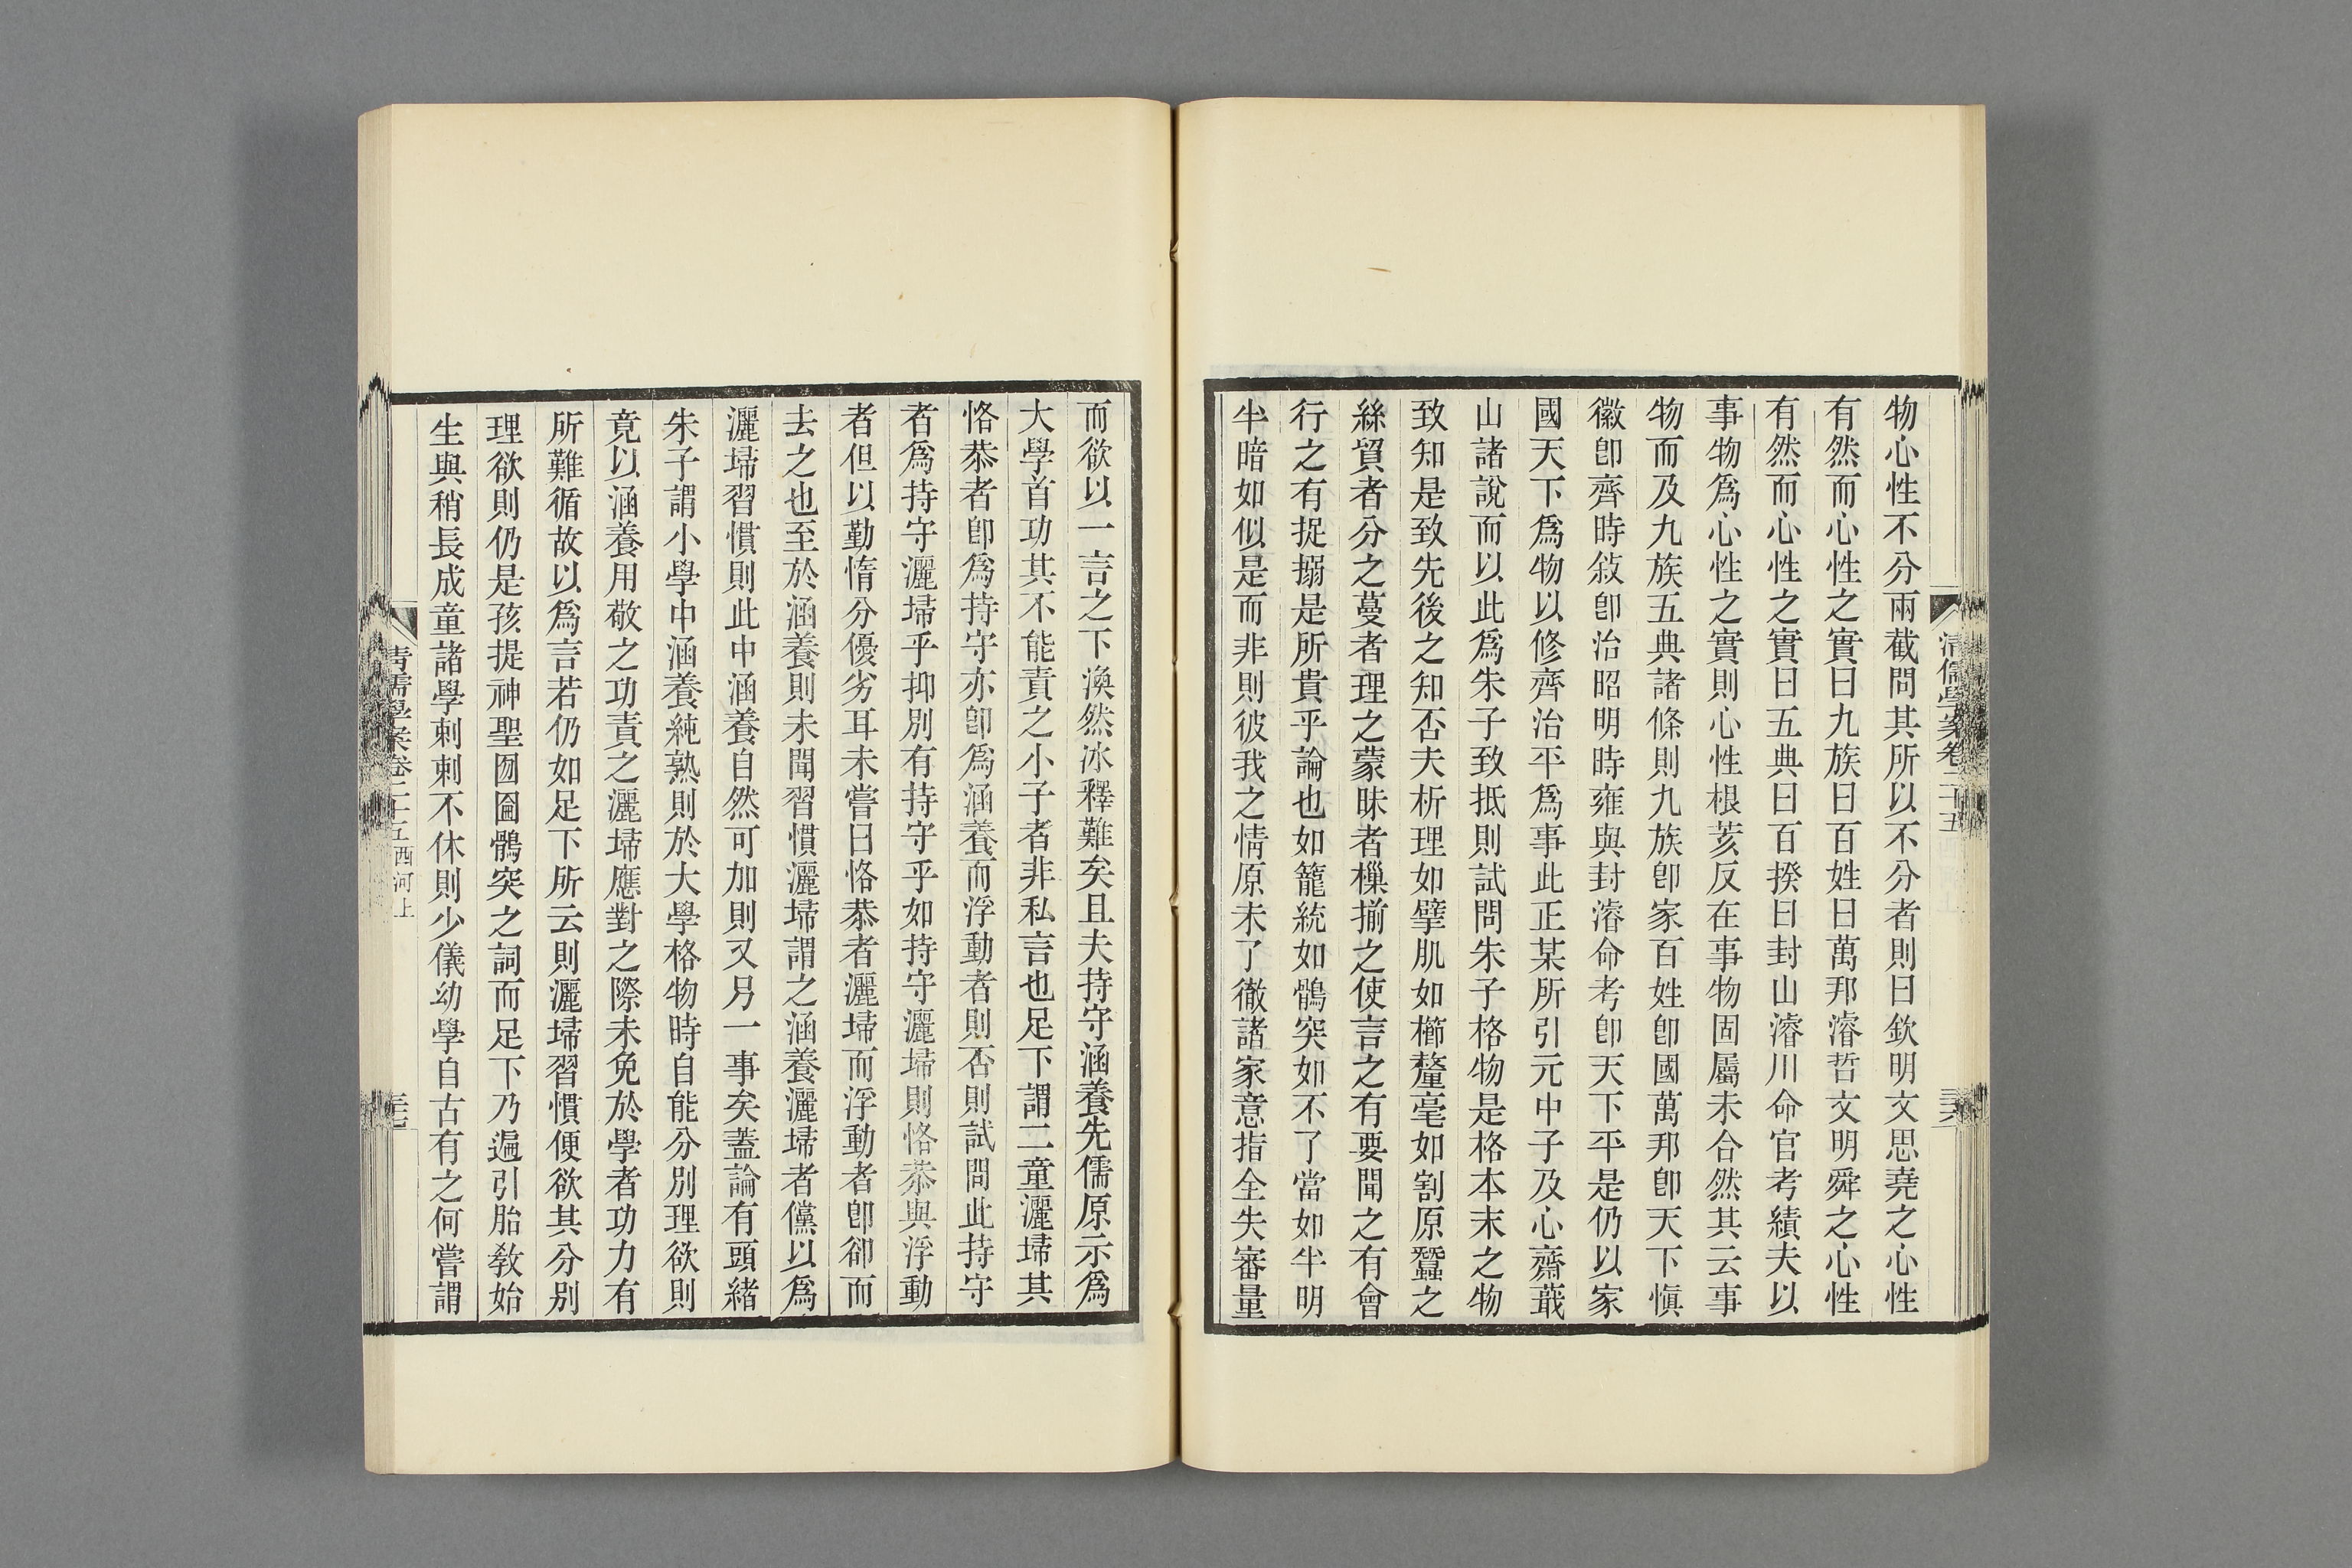 物心性不分兩截問其所以不分者則曰欽明文思堯之心性
有然而心性之實曰九族曰百姓曰萬邦濬哲文明舜之心性
有然而心性之實曰五典曰百揆曰封山濬川命官考績夫以
事物爲心性之實則心性根荄反在事物固屬未合然其云事
物而及九族五典諸條則九族卽家百姓卽國萬邦卽天下愼
徽卽齊時敍卽治昭明時雍與封濬命考卽天下平是仍以家
國天下爲物以修齊治平爲事此正某所引元中子及心齋蕺
山諸說而以此爲朱子致抵則試問朱子格物是格本末之物
致知是致先後之知否夫析理如擘肌如櫛釐毫如割原蠶之
絲貿者分之蔓者理之蒙昧者樔揃之使言之有要聞之有會
行之有捉搦是所貴乎論也如籠統如鶻突如不了當如半明
半暗如似是而非則彼我之情原未了徹諸家意指全失審量
清儒學案卷二十五
三六
而欲以一言之下渙然冰釋難矣且夫持守涵養先儒原示爲
大學首功其不能責之小子者非私言也足下謂二童灑埽其
恪恭者卽爲持守亦卽爲涵養而浮動者則否則試問此持守
者爲持守灑埽乎抑別有持守乎如持守灑埽則恪恭與浮動
者但以勤惰分優劣耳未嘗曰恪恭者灑埽而浮動者卽卻而
去之也至於涵養則未聞習慣灑埽謂之涵養灑埽者儻以爲
灑埽習慣則此中涵養自然可加則又另一事矣蓋論有頭緖
朱子謂小學中涵養純熟則於大學格物時自能分別理欲則
竟以涵養用敬之功責之灑埽應對之際未免於學者功力有
所難循故以爲言若仍如足下所云則灑埽習慣便欲其分別
理欲則仍是孩提神聖囫圇鶻突之詞而足下乃遍引胎敎始
生與稍長成童諸學剌剌不休則少儀幼學自古有之何嘗謂
清儒學案卷二十五 西河上
三七